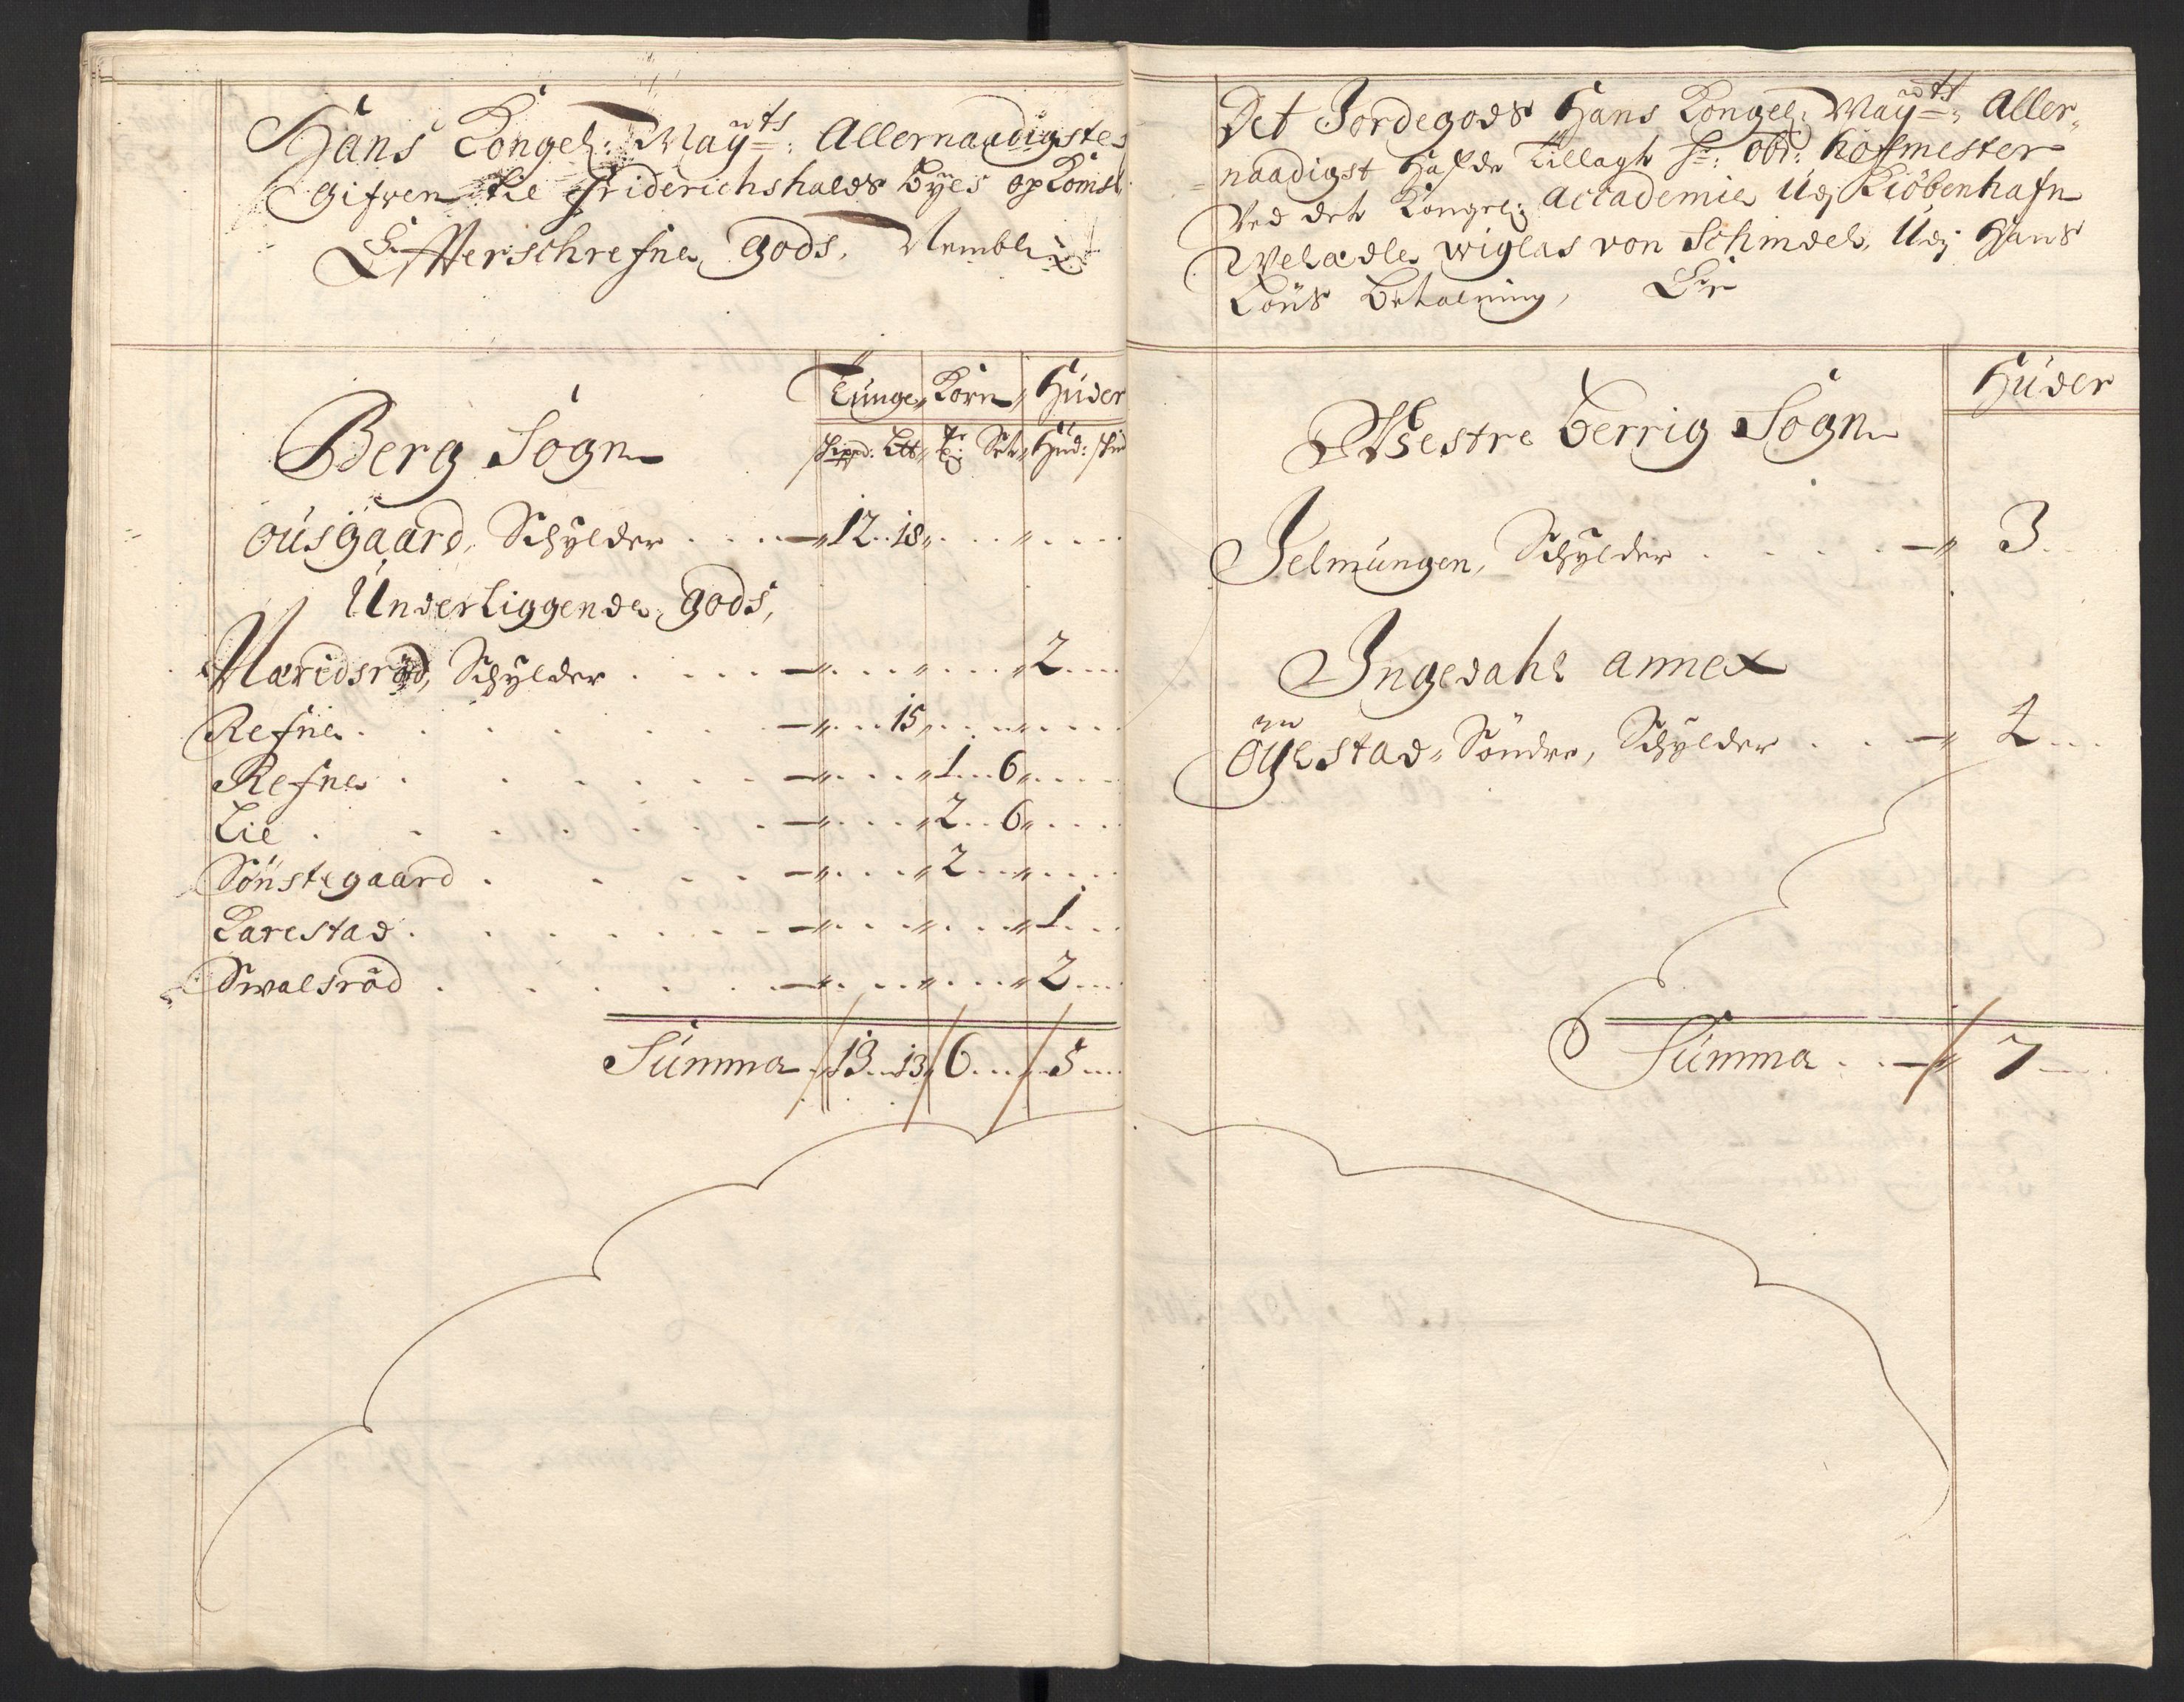 Hans Kongel: Maÿts: Allernaadigste
Gifven til Friderichshalds Byes opKomst
Effterschrefne gods, Nemblig
Tunge Korn Huder
Berg Sogn
Schippd: Ltt Tr: Set Hud: skind
Ousgaard, Schÿlder 12 18
Underliggende gods,
Næridsröd, Schÿlder 2
Refne 15
Refne 1 6
Lie 2 6
Sönstegaard 2
Karestad 1
Swalsröd 2
Summa 13 13 6 5
Det Jordegods Hans Kongel: Maÿts: Aller
naadigst hafde tillagt Sr: Obr: Hofmester
Ved det Kongel: Accademie Udj Kiöbenhafn
Velædle wiglas von Schindel, Udj Hans
Löns Betalning, Er
Huder
Westre Berrig Sogn
Jelmungen, Schÿlder 3
Ingedahl annex
Öÿestad Söndre, Schÿlder 4
Summa 7